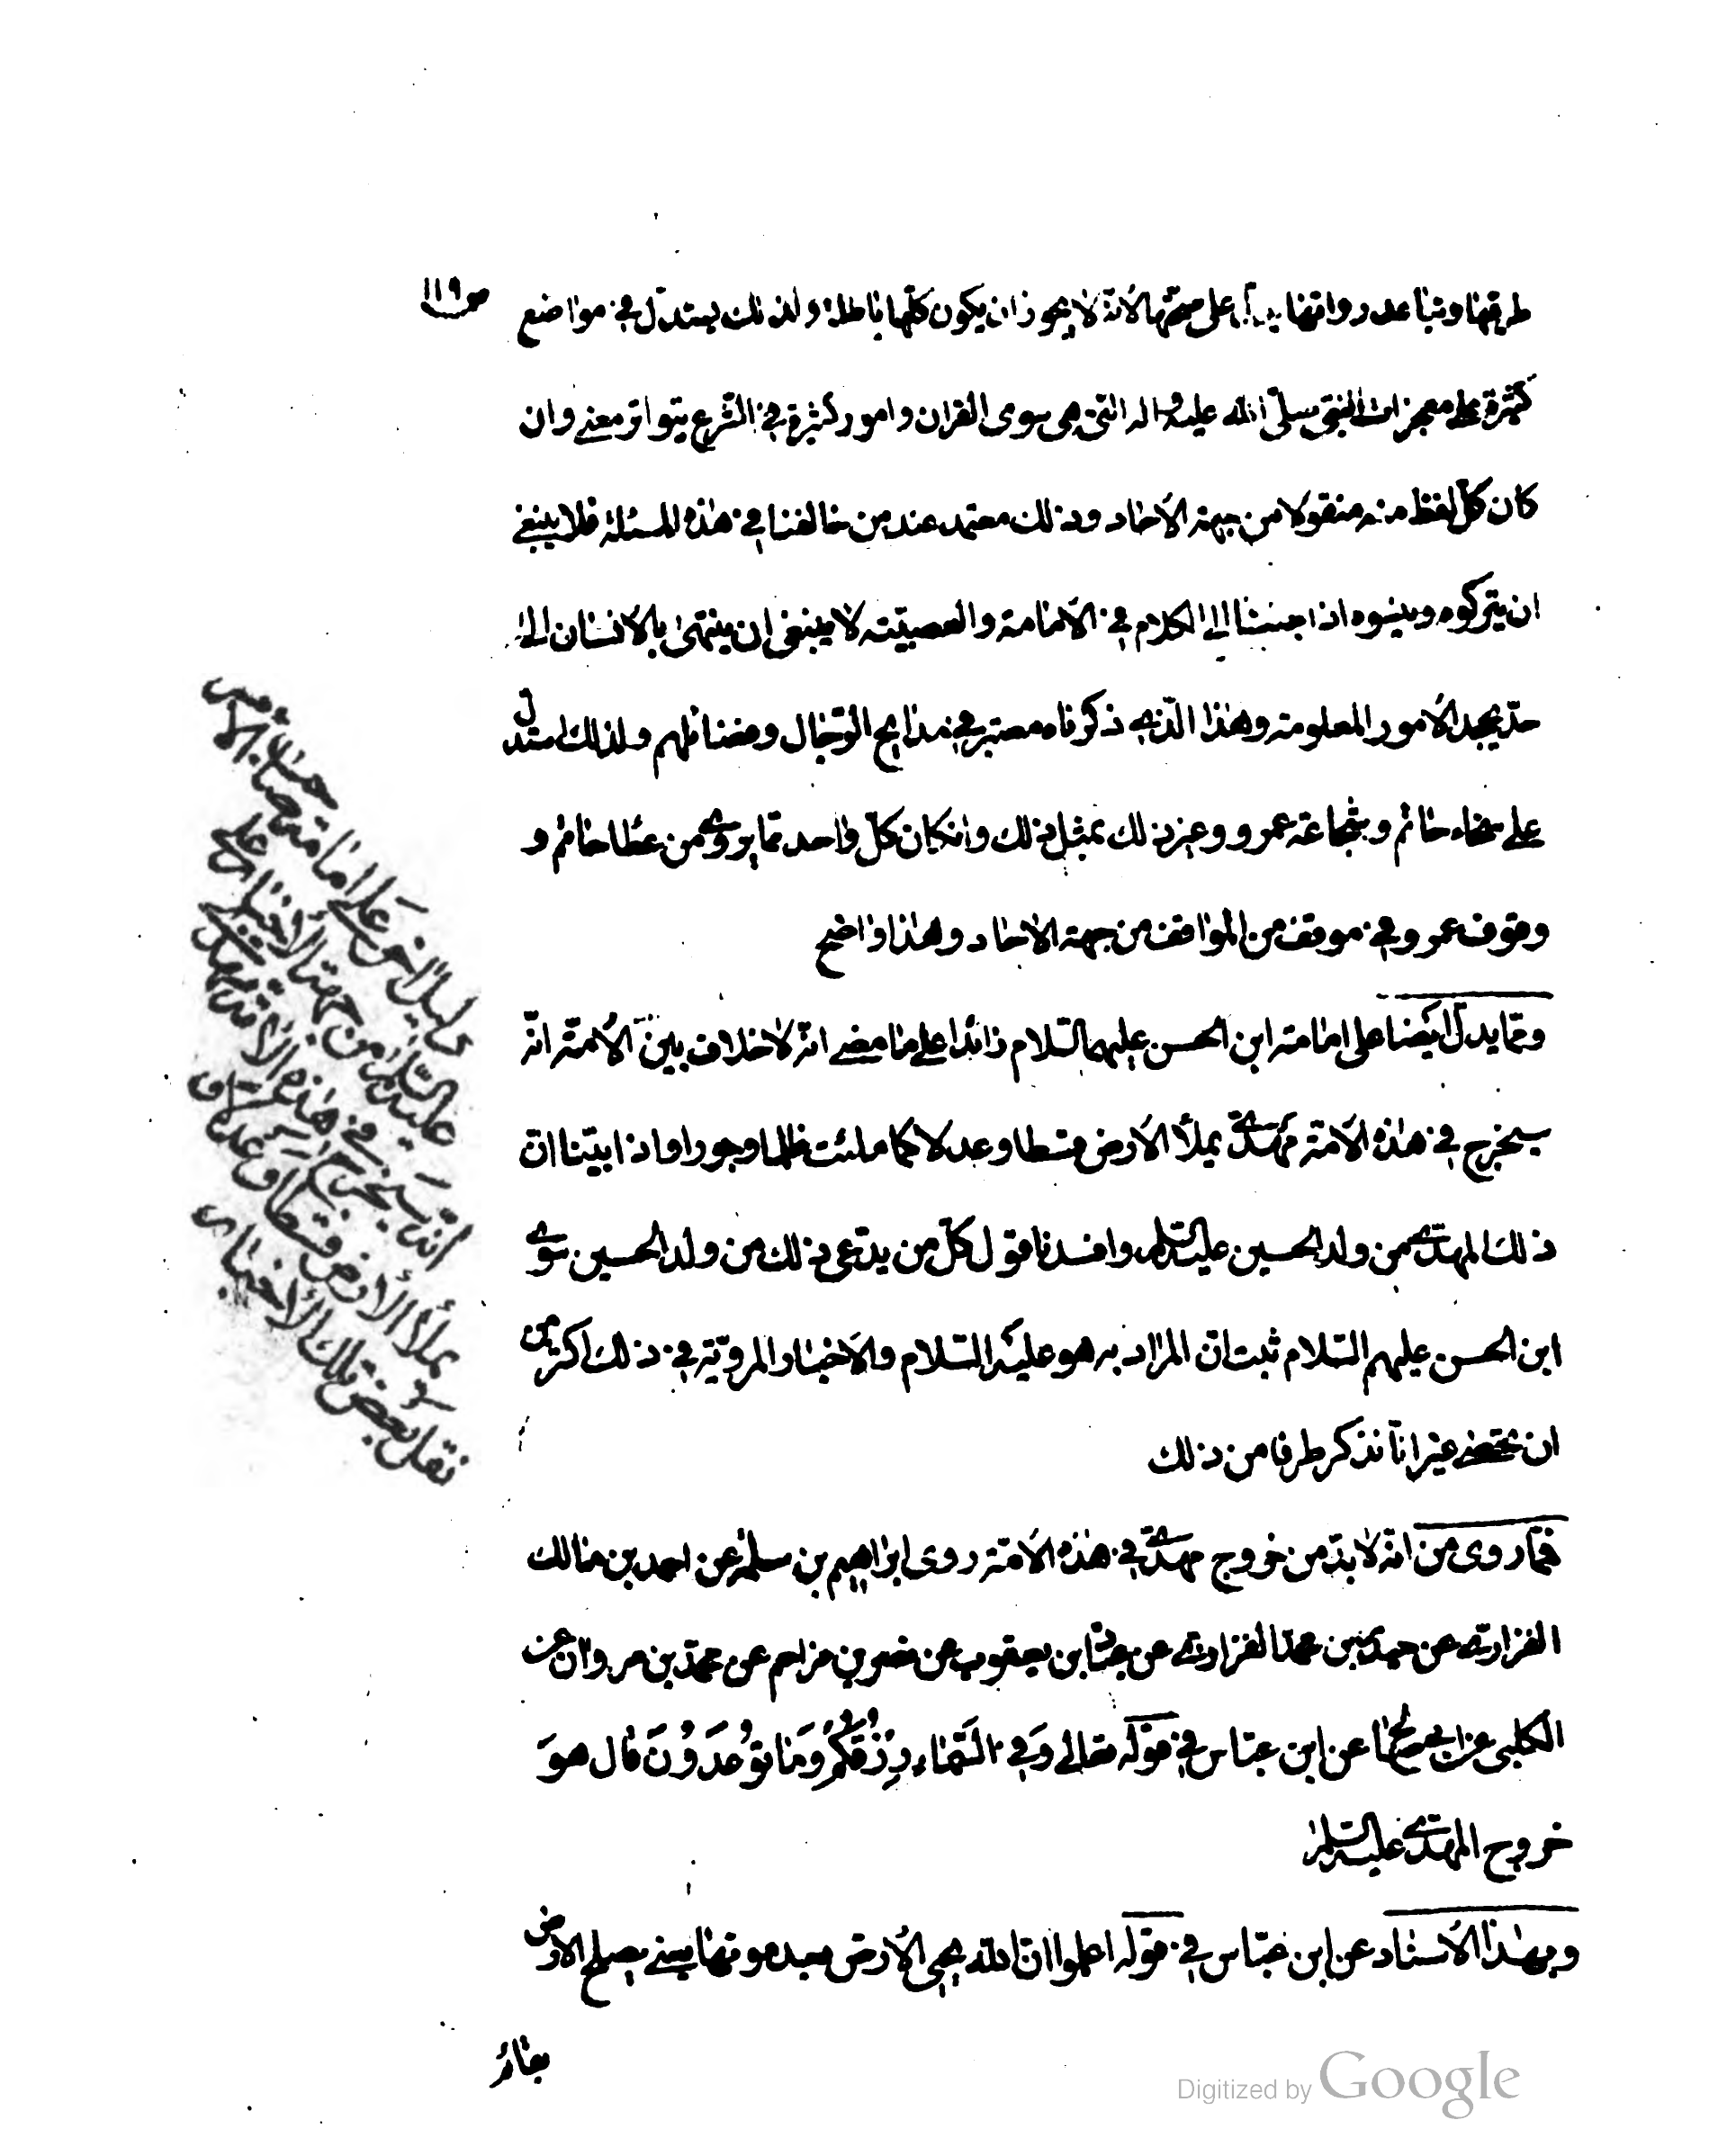 ص ١١٩
طرقها وتباعد رواتها يدل على صحتها لانه لا يجوز ان يكون كلها باطلة ولذلك يستدل في مواضع
كثيرة على معجزات النبي صلى الله عليه واله التي هي سوى القران وامور كثيرة في الشرع يتواتر معنى وان
كان كل لفظ منه منقولا من جهة الآحاد وذلك معتمد عند من خالفنا في هذه المسئلة فلا ينبغي
ان يتركوه وينسوه اذا جئنا الى الكلام في الامامة والعصبيّة لا ينبغي ان ينتهى بالانسان الى
حد يجحد الأمور المعلومة وهذا الذي ذكرناه معتبر في مدايح الرّجال وفضائلهم ولذلك استدل
على سخاء حاتم وشجاعة عمرو وغير ذلك بمثل ذلك وانكان كلّ واحد مما يروى من عطا حاتم و
وقوف عمرو في موقف من المواقف من جهة الاحاد وهذا واضح
ومما يدل ايضا على امامة ابن الحسن عليهما السّلام زائدا على ما مضى انه لا خلاف بين الأمّة انّه
سيخرج في هذه الأمّة مهديّ يملأ الأرض قسطا وعدلا كما ملئت ظلما وجورا واذا بيّنا انّ
ذلك المهدي من ولد الحسين عليه السلام وافسدنا قول كلّ من يدّعى ذلك من ولد الحسين سوى
ابن الحسن عليهم السّلام ثبت انّ المراد به هو عليه السّلام والأخبار المرويّة في ذلك اكثر من
ان تحصى غير انّا نذكر طرفا من ذلك
فمما روى من انّه لا بدّ من خروج مهديّ في هذه الأمّة روى ابراهيم بن سلمة عن احمد بن مالك
الفزاري عن حيدر بن محمد الفزاري عن عباد بن يعقوب عن نصر بن مزاحم عن محمد بن مروان عن
الكلبى عن ابي صالح عن ابن عبّاس في قوله تعالى وَفِي السَّمَاءِ رِزْقُكُمْ وَمَا تُوعَدُونَ قال هوَ
خروج المهدي عليه السلام
وبهذا الأسناد عن ابن عبّاس في قوله اعلموا ان الله يحيى الأرض بعد موتها يعني يصلح الارض
بقائم
دليل اخر على امامة صاحب الزمان
عليه السلام من جهة الأخبار على
انّه سيخرج في هذه الأمّة
يملأ الأرض قسطا وعدلا و
نقل بعض تلك الأخبار
Digitized by Google